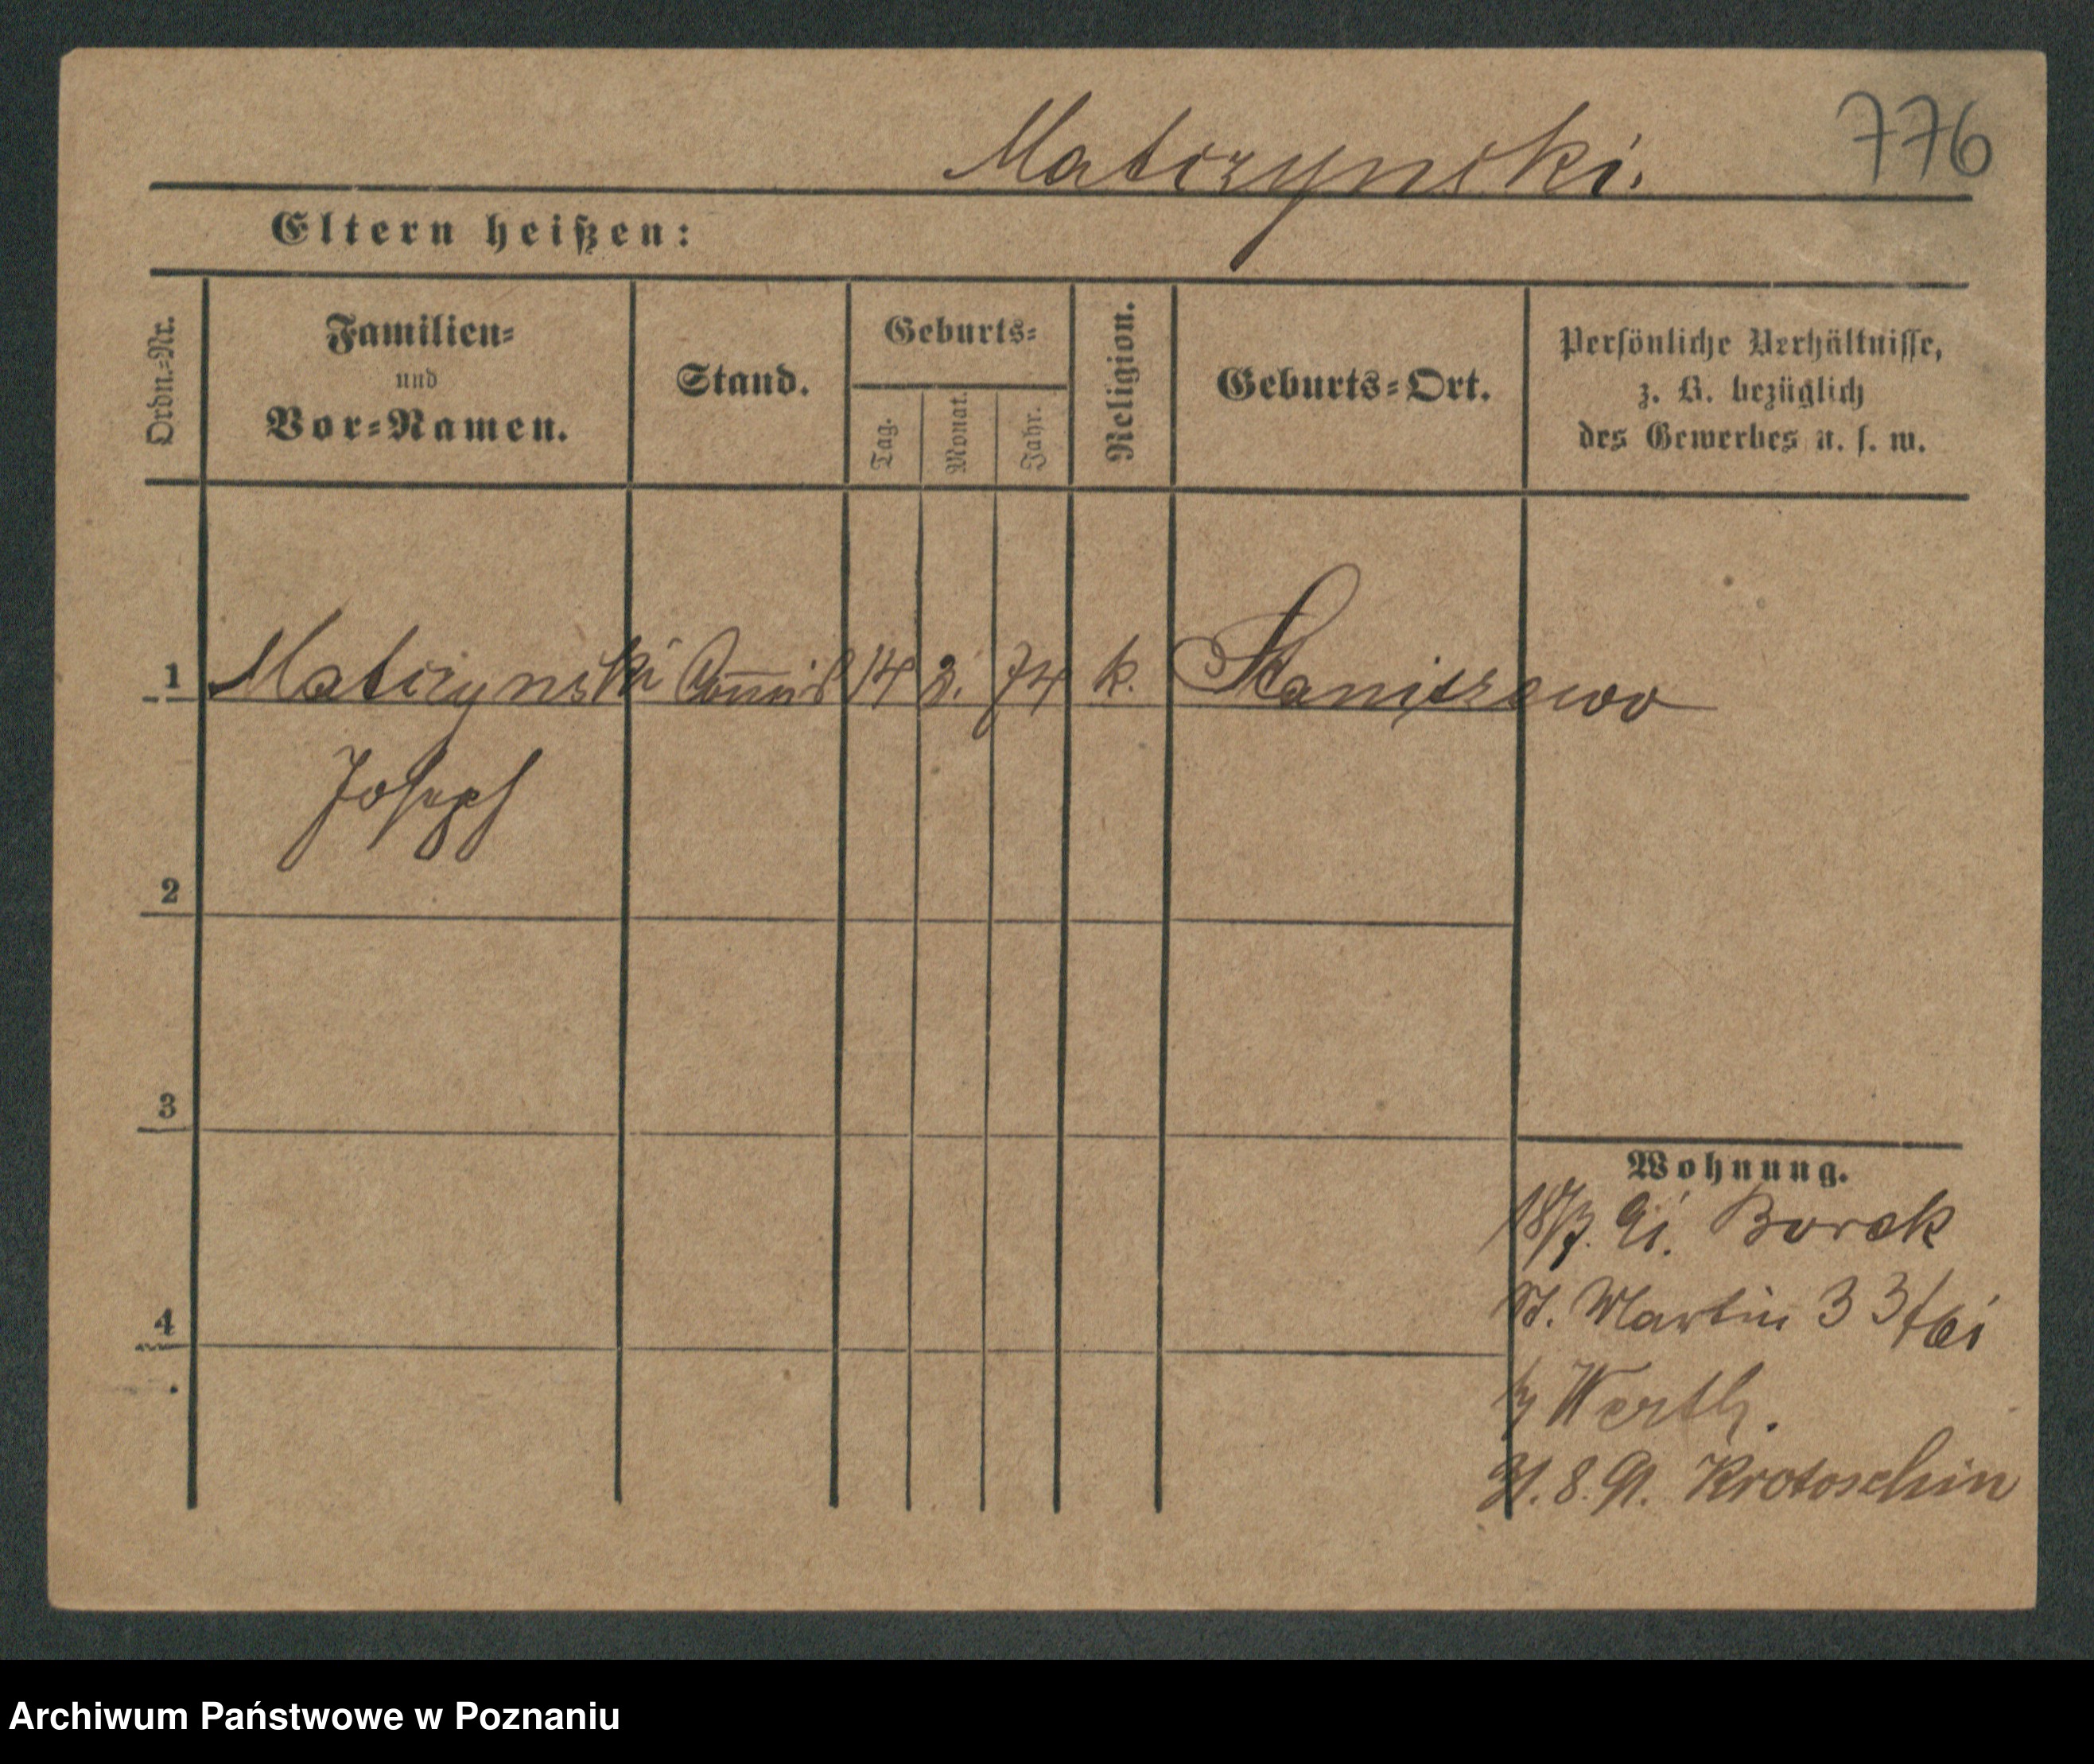 776
Matczynski.
Eltern heißen:
Ordn.-Nr.
Familien-
und
Vor-Namen.
Stand.
Geburts-
Tag.
Monat.
Jahr.
Religion.
Geburts-Ort.
Persönliche Verhältnisse,
z. B. bezüglich
des Gewerbes u. s. w.
1 Matczynski Com̅is 14 2. 74 k. Staniszewo
Joseph
2
3
4
Wohnung.
18/7. 91. Borek
St. Martin 3 3 bei
Werth.
31. 8. 91. Krotoschin
Archiwum Państwowe w Poznaniu